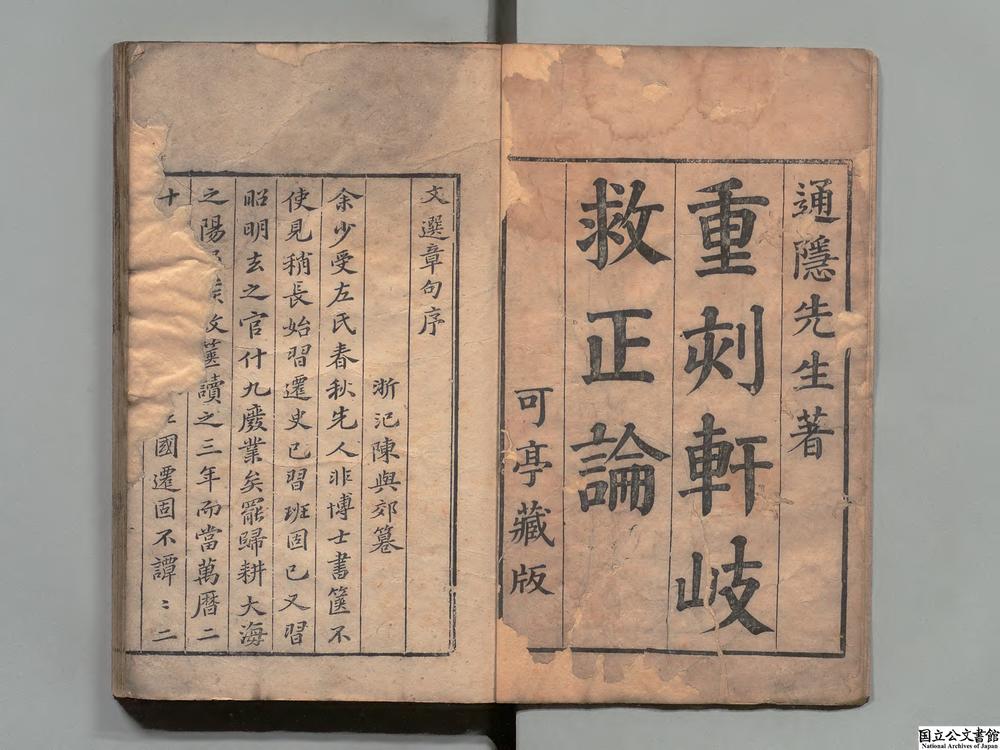 通隱先生著
重刻軒岐
救正論
可亭藏版
文選章句序
浙汜陳與郊篹
余少受左氏春秋先人非博士書篋不
使見稍長始習遷史已習班固已又習
昭明玄之官什九廢業矣罷歸耕大海
之陽讀之三年而當萬曆二
十國遷固不譚〻二
国立公文書館
National Archives of Japan